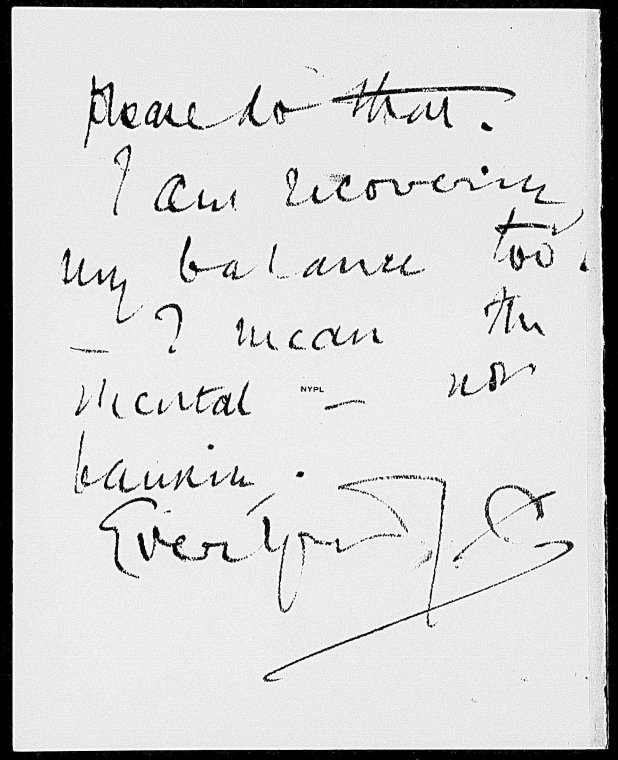 please do that.
I am recovering
my balance too.
— I mean the
mental — not
bankin.
Ever Yours
NYPL